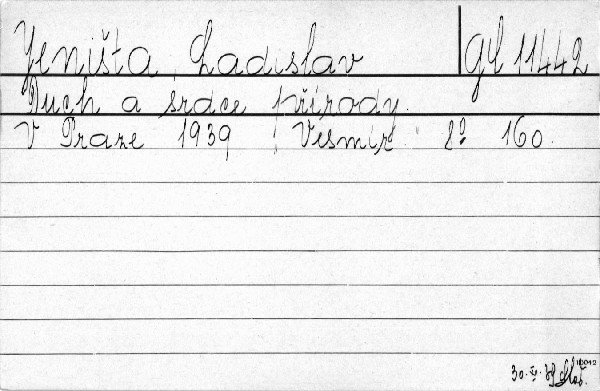 Jeništa Ladislav gE 11442
Duch a srdce přírody.
V Praze 1939 Vesmír 8° 160.
10042